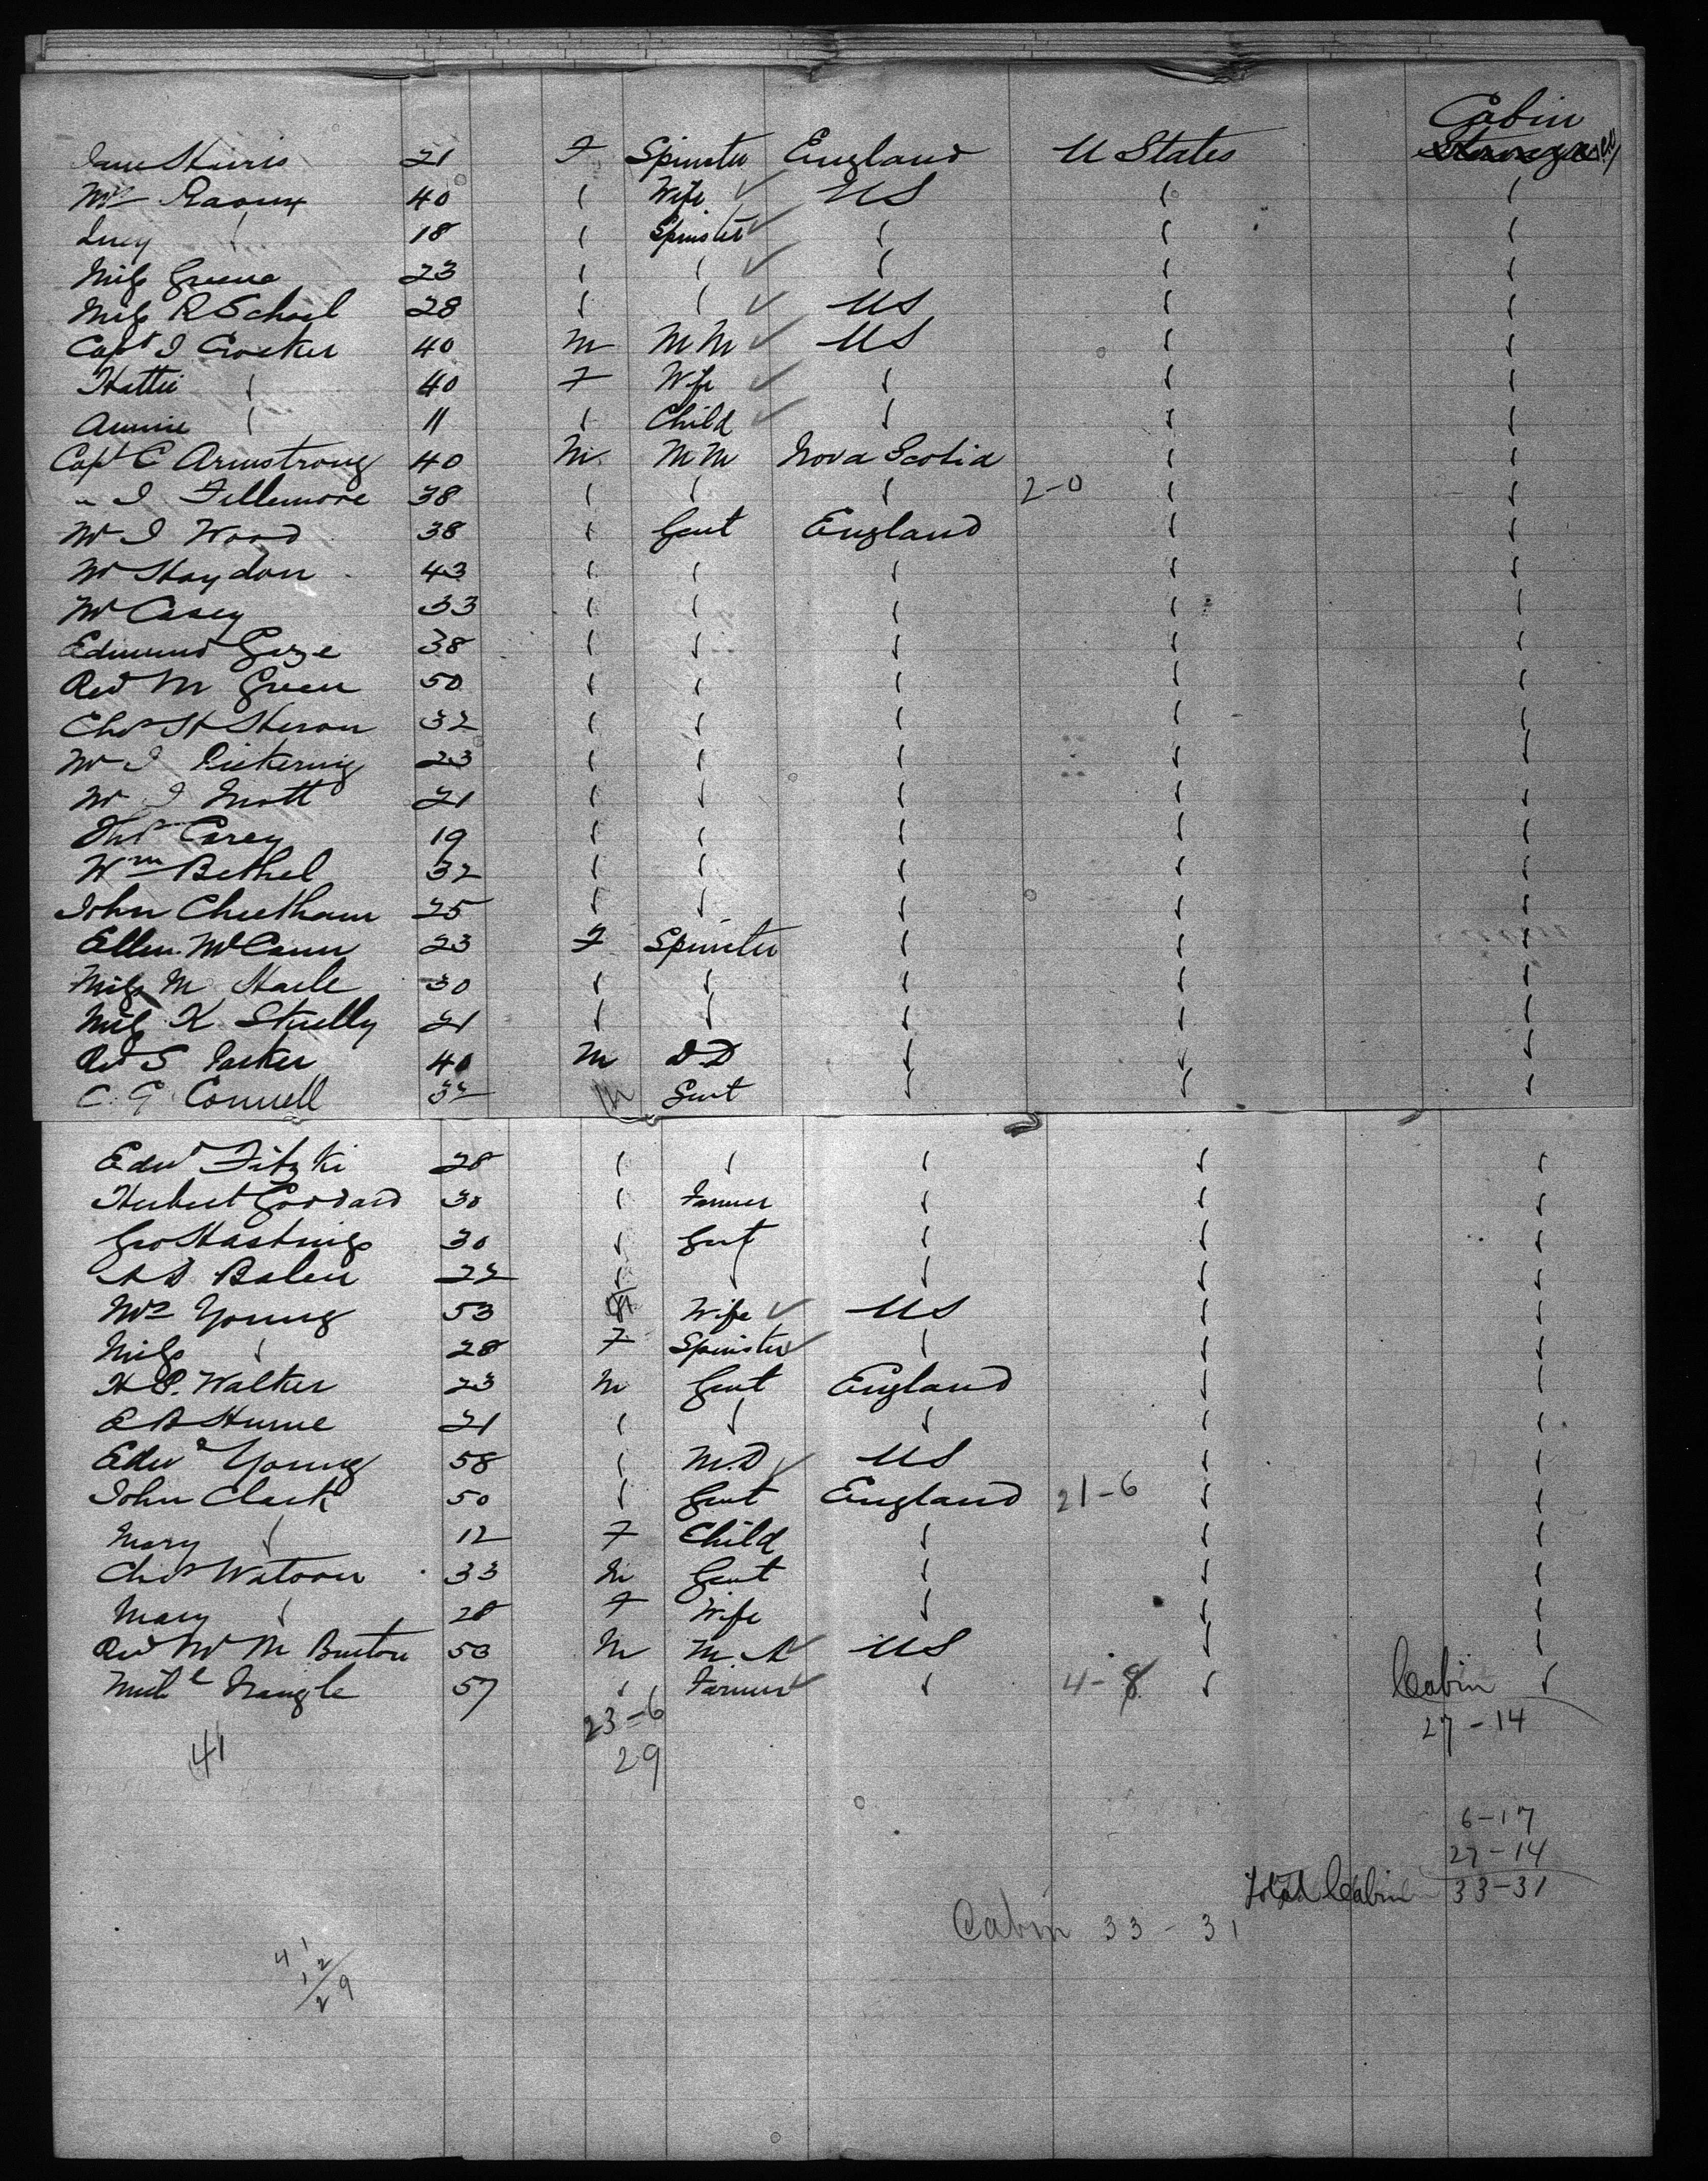 Cabin
Jane Harris 21 F Spinster England U States
Mrs 40 " Wife ✓ US " "
Lucy " 18 " Spinster ✓ " " "
Miss Greene 23 " " ✓ " " "
Miss R School 28 " " ✓ US " "
Capt J Crocker 40 M MM ✓ US " "
Hattie " 40 F Wife ✓ " " "
Annie " 11 " Child ✓ " " "
Capt C Armstrong 40 M MM Nova Scotia " "
" J Fillemore 38 " " " 2-0 " "
Mr J Wood 38 " Gent England " "
Mr Haydon 43 " " " " "
Mr Casey 33 " " " " "
Edmund Gaze 38 " " " " "
Rev M Green 50 " " " " "
Chas H Heron 32 " " " " "
Mr J Pickering 23 " " " " "
Mr J Mott 21 " " " " "
Thos Carey 19 " " " " "
Wm Bethel 32 " " " " "
John Cheetham 25 " " " " "
Ellen McCann 23 F Spinster " " "
Miss M Harle 30 " " " " "
Miss K Skelly 21 " " " " "
Rev S Parker 40 M DD " " "
C. G. Connell 32 M Gent " " "
Edwd Fitzki 28 " " " " "
Herbert Goddard 30 " Farmer " " "
Geo Hastings 30 " Gent " " "
A D Balen 22 " " " " "
Mrs Young 53 Wife ✓ US " "
Miss " 28 F Spinster ✓ " " "
H P. Walker 23 M Gent England " "
E A Hume 21 " " " " "
Edwd Young 58 " M.D ✓ US " "
John Clark 50 " Gent England 21-6 " "
Mary " 12 F Child " " "
Chas Watson 33 M Gent " " "
Mary " 28 F Wife " " "
Rev Mr M Burton 53 M M A ✓ US " "
Michl Nangle 57 " Farmer ✓ " 4-8 " Cabin "
23-6 27-14
41 29
6-17
27-14
Total Cabin 33-31
Cabin 33-31
41
12
29